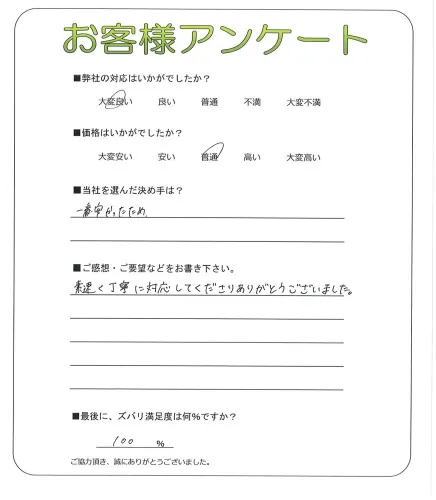 お客様アンケート
■弊社の対応はいかがでしたか？
大変良い 良い 普通 不満 大変不満
■価格はいかがでしたか？
大変安い 安い 普通 高い 大変高い
■当社を選んだ決め手は？
一番早かったため、
■ご感想・ご要望などをお書き下さい。
素速く丁寧に対応してくださりありがとうございました。
■最後に、ズバリ満足度は何％ですか？
100 ％
ご協力頂き、誠にありがとうございました。